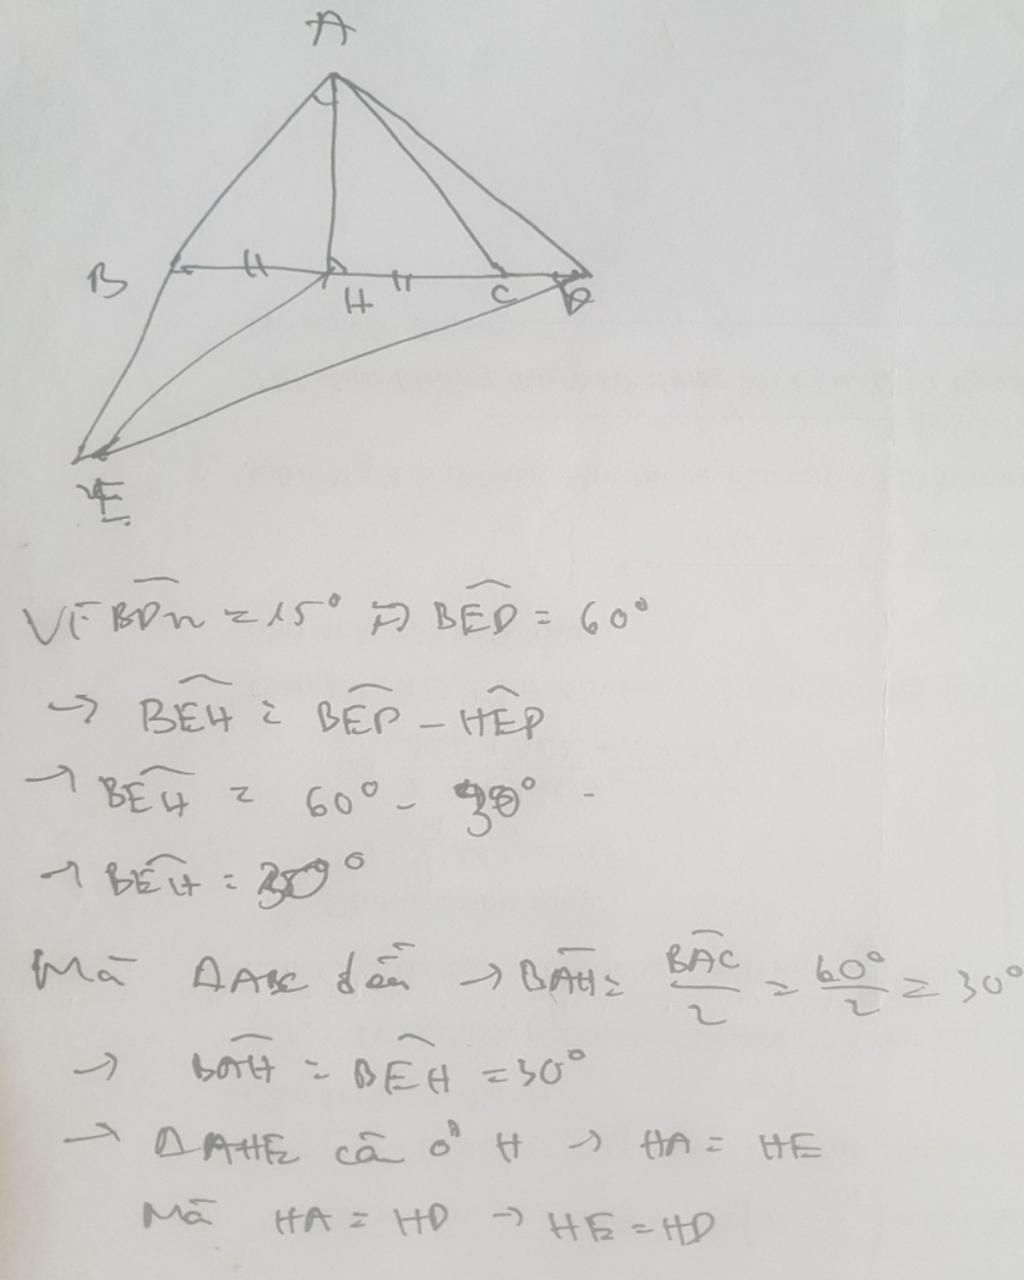 A
B
H
C
D
E
Vì \widehat{BDA} = 15° => \widehat{BED} = 60°
→ \widehat{BEH} = \widehat{BED} - \widehat{HED}
→ \widehat{BEH} = 60° - 30°
→ \widehat{BEH} = 30°
Mà ΔABC đều → \widehat{BAH} = \frac{\widehat{BAC}}{2} = \frac{60°}{2} = 30°
→ \widehat{BAH} = \widehat{BEH} = 30°
→ ΔAHE cân ở H → HA = HE
Mà HA = HD → HE = HD